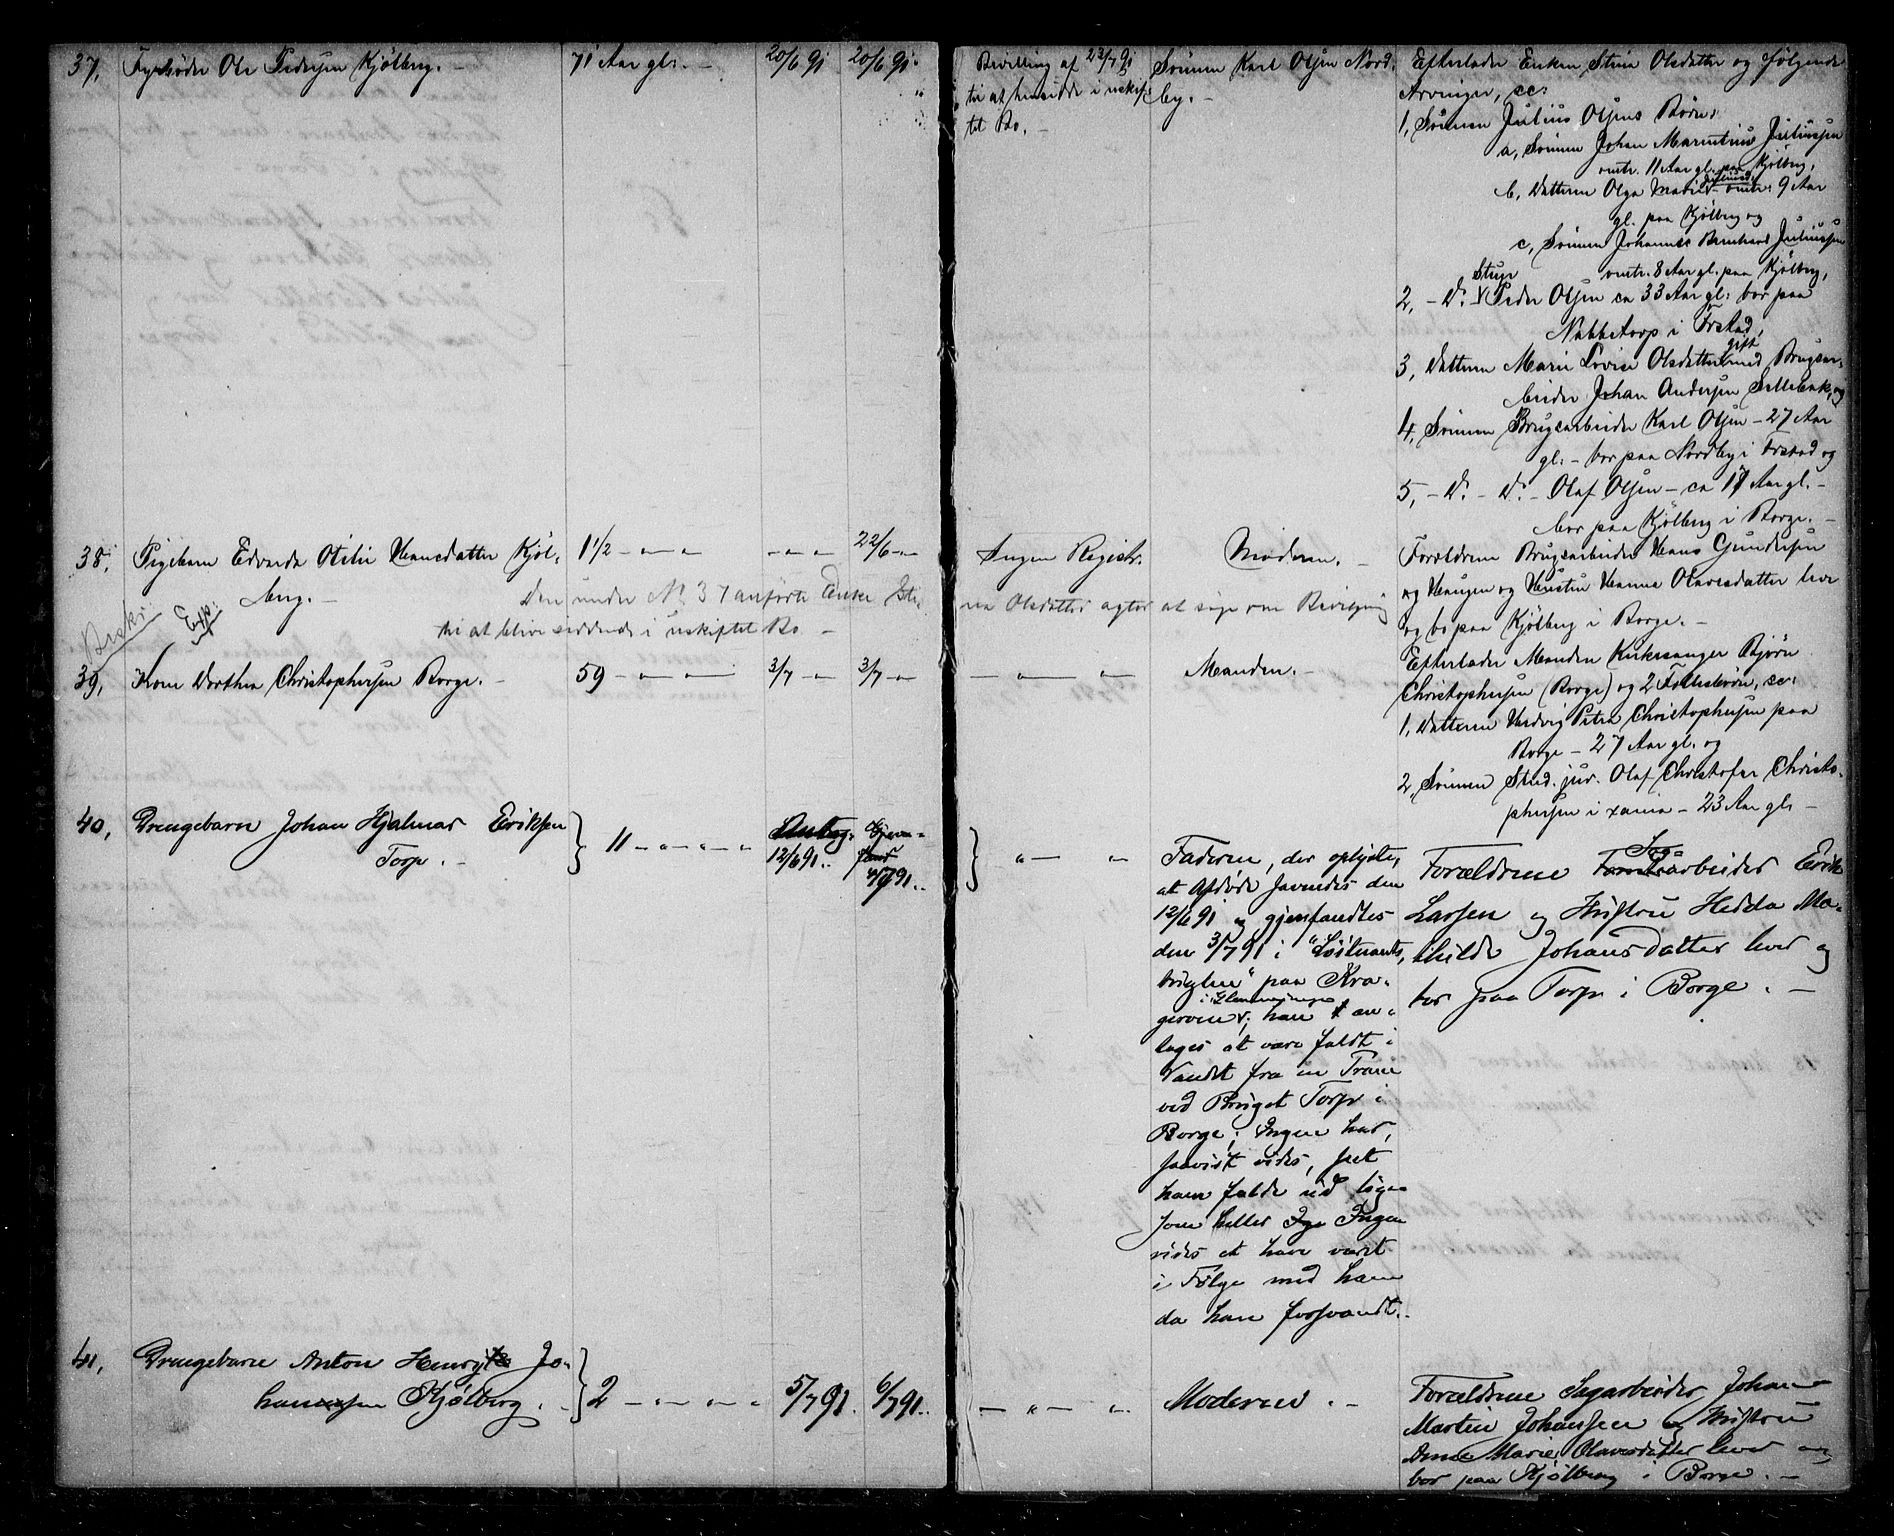 37, Fyrbøder Ole Pedersen Kjølberg. –
71 Aar gl. –
20/6 91
20/6 91.
"
Bevilling af 23/7 91
til at hensidde i uskif-
tet Bo. –
Sønnen Karl Olsen Nord-
by. –
Efterlader Enken Stine Olsdatter og følgende
Arvinger, sc:
1, Sønnen Julius Olsens Børn:
a, Sønnen Johan Marentius Juliussen
omtr. 11 Aar gl. paa Kjølberg,
b, Datteren Olga Matild Juliusd. omtr. 9 Aar
gl. paa Kjølberg og
c, Sønnen Johannes Bernhard Juliussen
omtr. 8 Aar gl. paa Kjølberg,
2, – Do. Peder Olsen ca 33 Aar gl. bor paa
Nabbetorp i Frstad,
3, Datteren Marie Lovise Olsdatter gift med Brugsar-
beider Johan Andersen Sellebak, og
4, Sønnen Brugsarbeider Karl Olsen – 27 Aar
gl. – bor paa Nordby i Frstad og
5, – Do. – Do. – Olaf Olsen – ca 17 Aar gl. –
bor paa Kjølberg i Borge. –
38, Pigebarn Edvarda Otilie Hansdatter Kjøl-
berg. –
1 1/2 – " – "
– " – "
22/6 – "
Ingen Registr.
Moderen. –
Forældrene Brugsarbeider Hans Gundersen
og Haugen og Hustru Hanna Olavesdatter lever
og bo paa Kjølberg i Borge. –
Den under No 37 anførte Enke Sti-
ne Olsdatter agter at søge om Bevilgning
til at blive siddende i uskiftet Bo –
Besk:
Exp:
39, Kone Dorthea Christophersen Borge. –
59 – " – "
3/7 – "
3/7 – "
– " – "
Manden. –
Efterlader Manden Kirkesanger Bjørn
Christophersen (Borge) og 2 Fællesbørn, sc:
1, Datteren Hedvig Petra Christophersen paa
Borge – 27 Aar gl. og
2, Sønnen Stud. jur. Olaf Christofer Christo-
phersen i Xania – 23 Aar gl. –
40, Drengebarn Johan Hjalmar Eriksen
Torp. –
11 – " – " – "
Antag.
12/6 91.
Gjen-
fund
91.
" – "
Faderen, der oplyste,
at Afdøde savnedes den
12/6 91 og gjenfandtes
den 3/7 91 i "Løitnants-
paa Kra-
i Glemminge
gerøen; han an-
tages at være faldt i
Vandet fra en Trane
ved Bruget Torp i
Borge; Ingen har,
saavidt vides, seet
ham falde ud lige-
som heller Ingen
vides at have været
i Følge med ham
da han forsvandt.
Forældrene Sagarbeider Erik
Larsen og Hustru Hedda Ma-
thilde Johansdatter lever og
bor paa Torp i Borge. –
41, Drengebarn Anton Henry Jo-
hansen Kjølberg. –
2 – " – " – "
5/7 91.
6/7 91.
– " – "
Moderen. –
Forældrene Sagarbeider Johan
Martin Johansen og Hustru
Anne Marie Olavesdatter lever og
bor paa Kjølberg i Borge. –